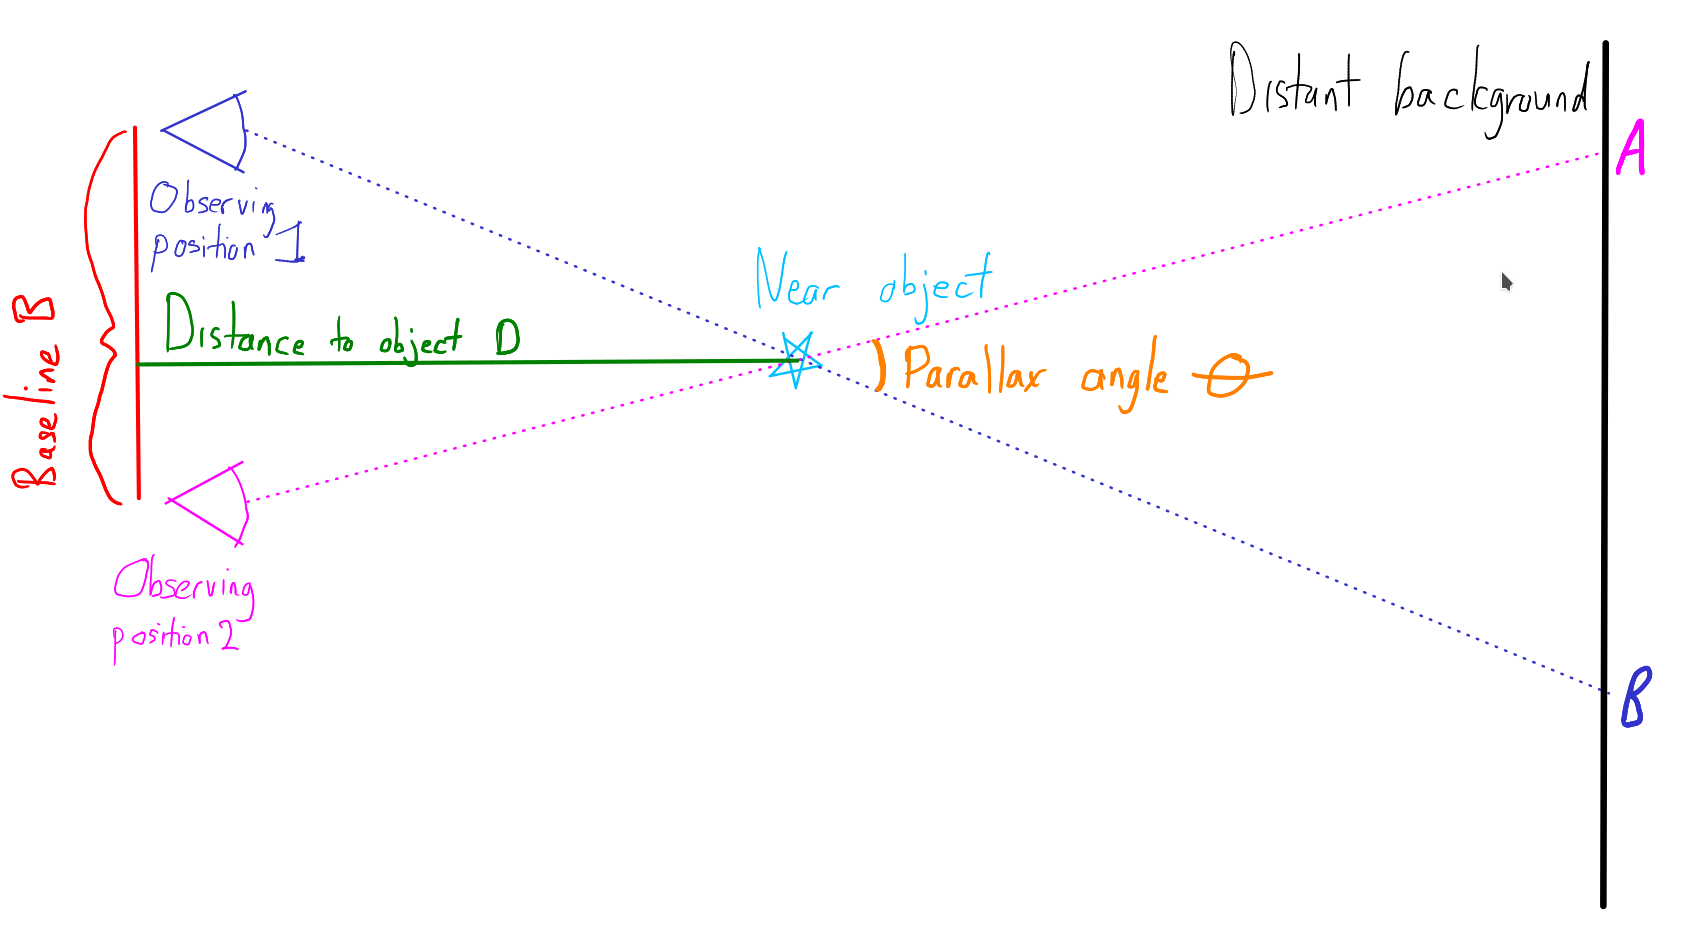 Distant background
A
Observing
position 1
Near object
Distance to object D
Baseline B
Parallax angle θ
Observing
position 2
B